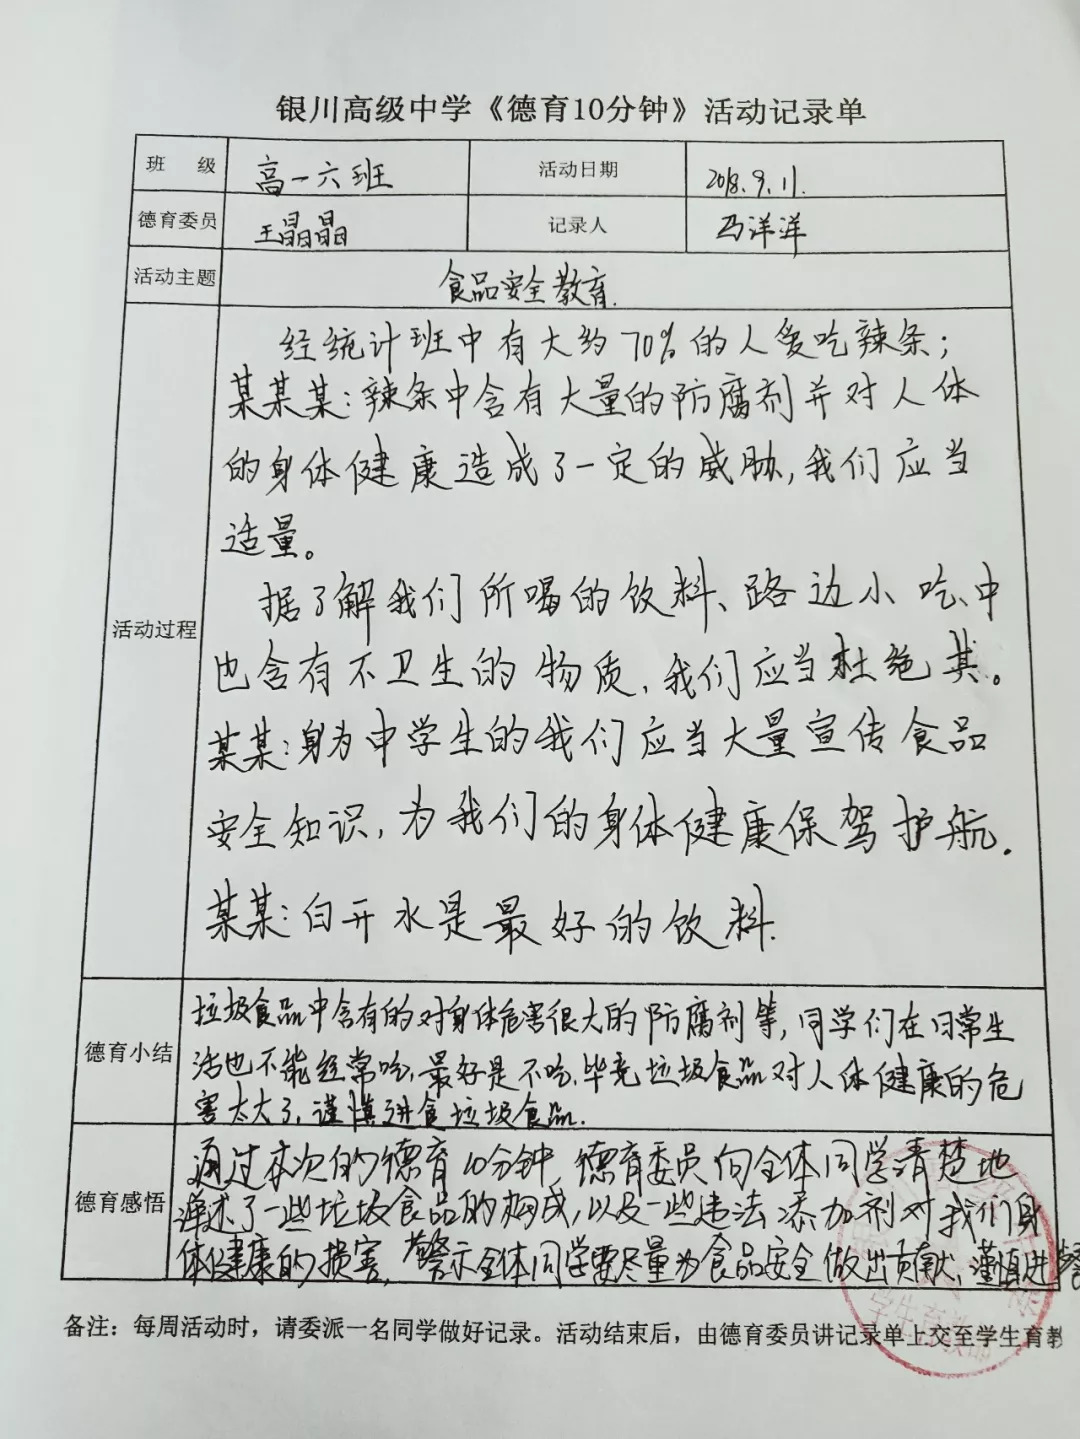 银川高级中学《德育10分钟》活动记录单
班 级 高一六班 活动日期 2018.9.11.
德育委员 王晶晶 记录人 马洋洋
活动主题 食品安全教育.
活动过程
经统计班中有大约70%的人爱吃辣条;
某某某:辣条中含有大量的防腐剂并对人体
的身体健康造成了一定的威胁,我们应当
适量。
据了解我们所喝的饮料、路边小吃、中
也含有不卫生的物质,我们应当杜绝其。
某某:身为中学生的我们应当大量宣传食品
安全知识,为我们的身体健康保驾护航.
某某:白开水是最好的饮料.
德育小结
垃圾食品中含有的对身体危害很大的防腐剂等,同学们在日常生
活也不能经常吃,最好是不吃,毕竟垃圾食品对人体健康的危
害太大了,谨慎进食垃圾食品.
德育感悟
通过本次的德育10分钟,德育委员向全体同学清楚地
讲述了一些垃圾食品的构成,以及一些违法添加剂对我们身
体健康的损害,警示全体同学要尽量为食品安全做出贡献,谨慎进餐
备注:每周活动时,请委派一名同学做好记录。活动结束后,由德育委员讲记录单上交至学生育教